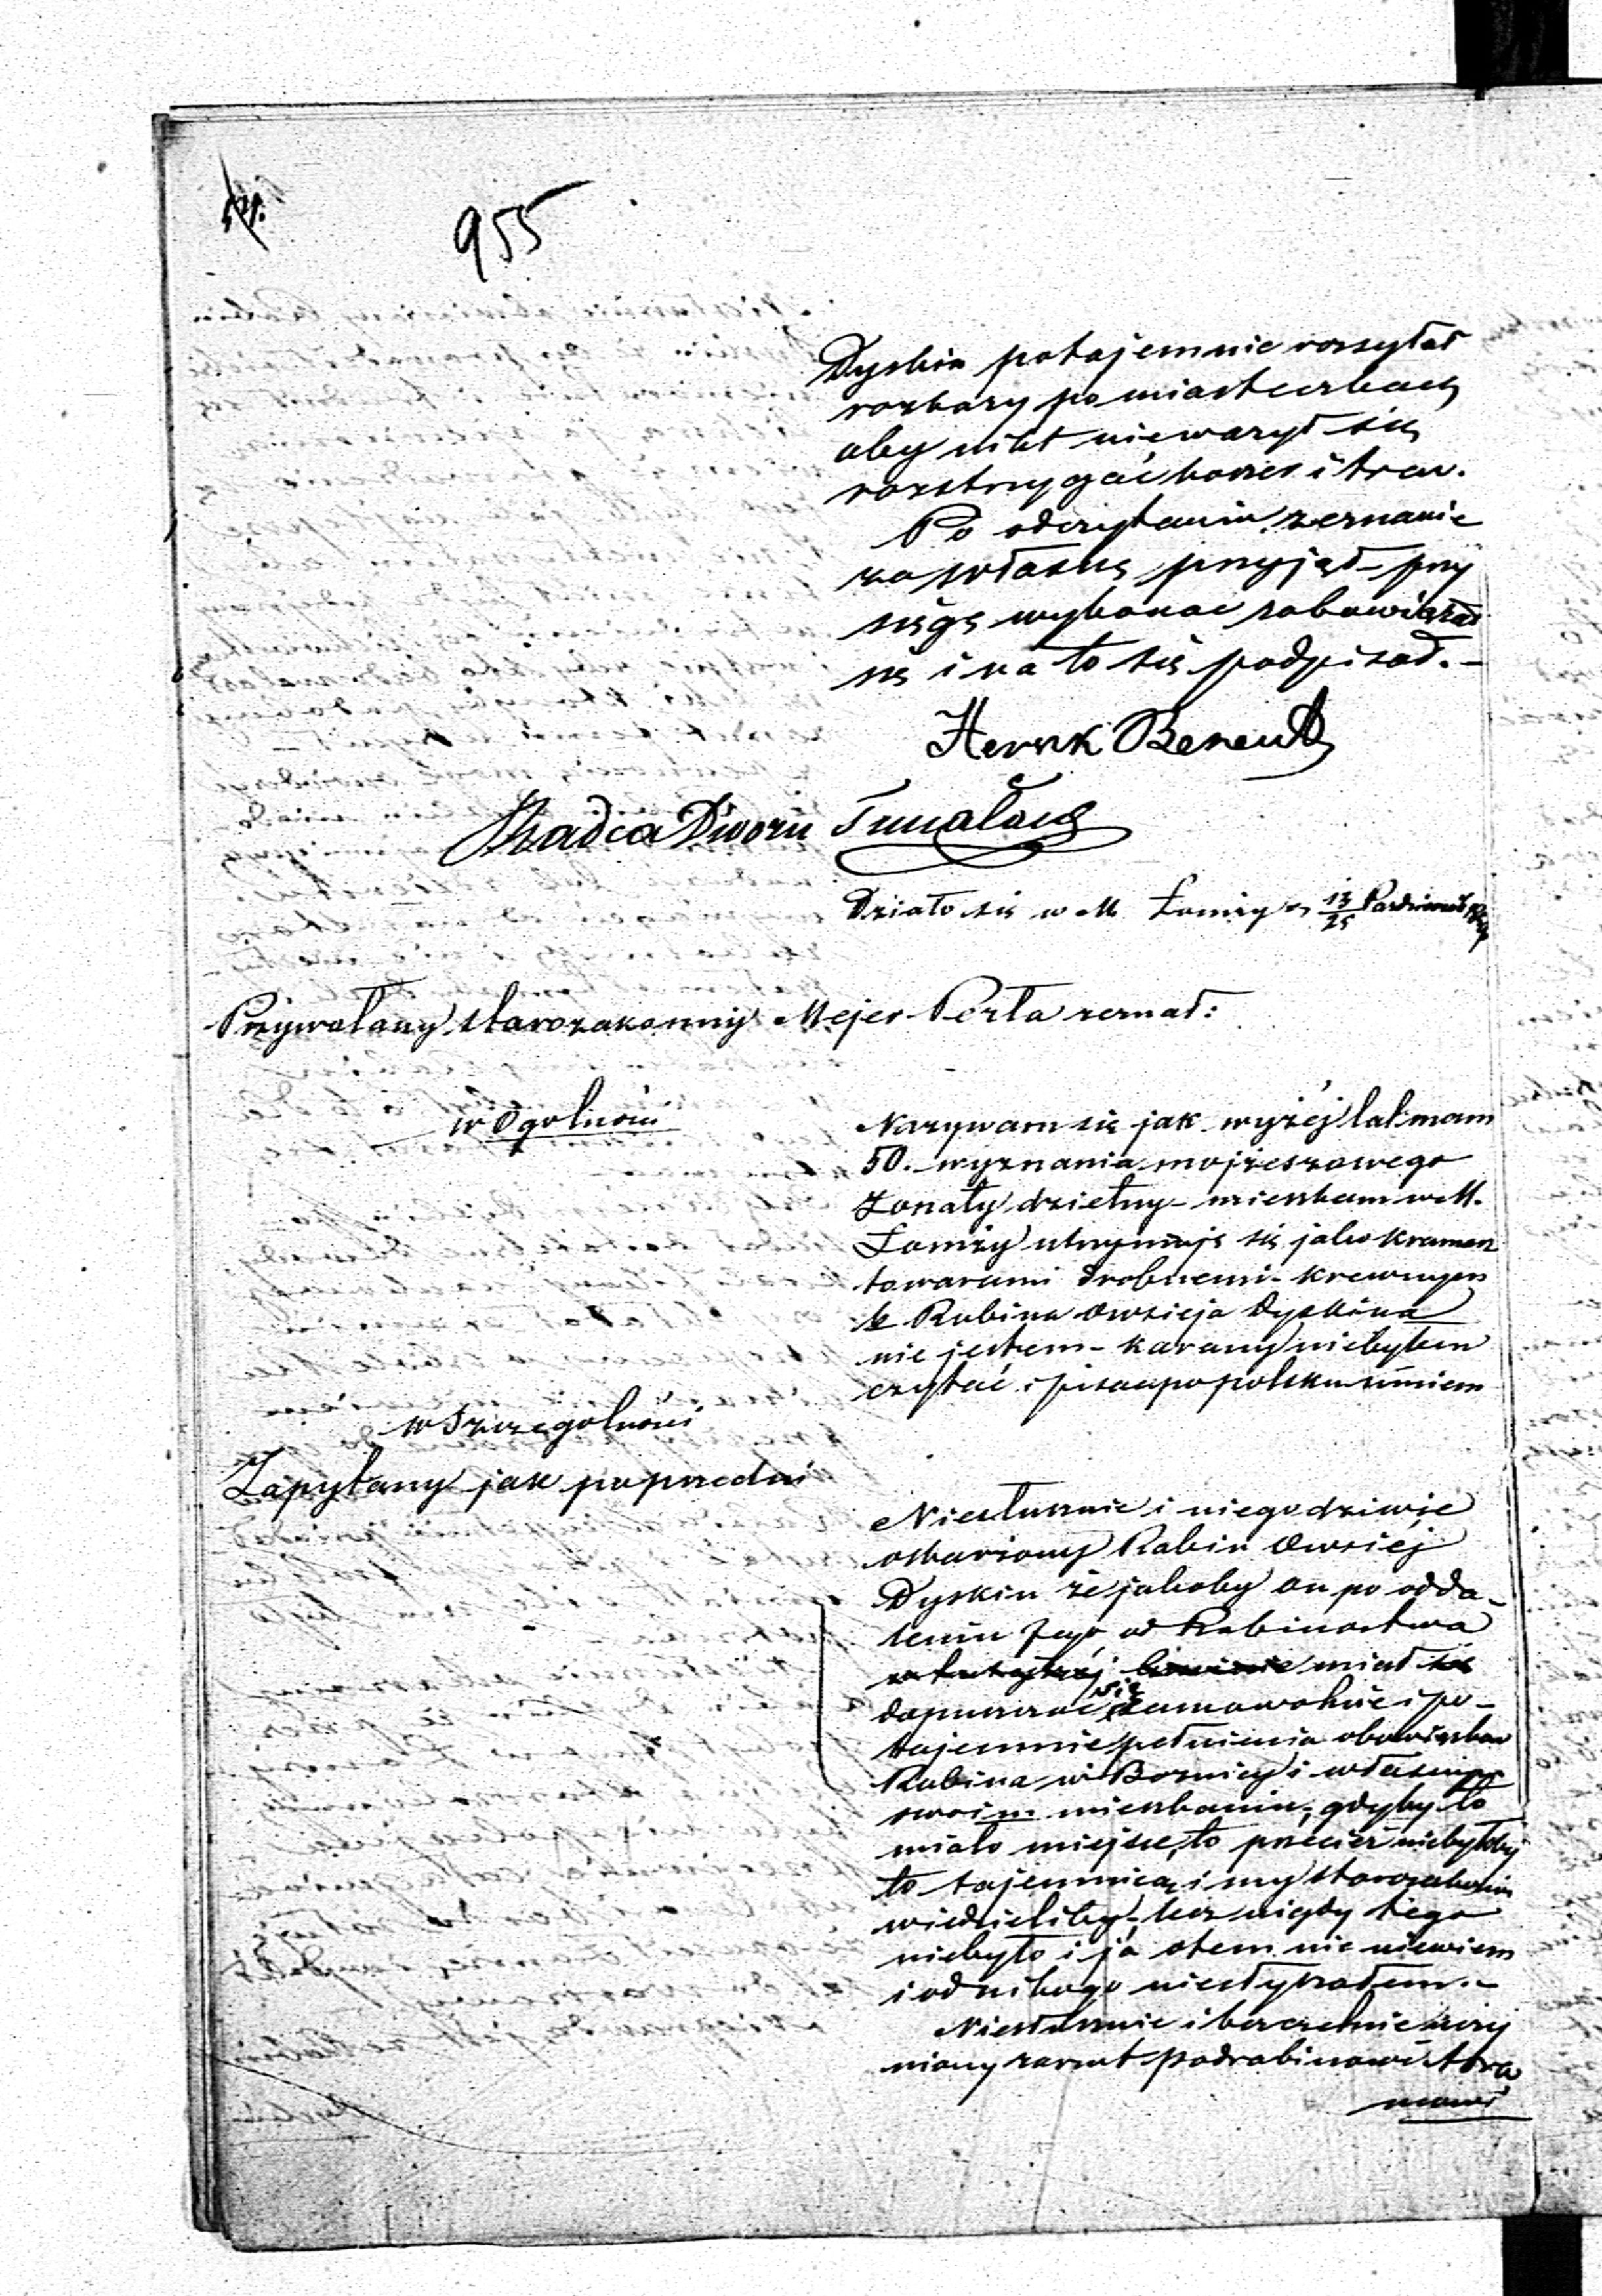 955
Dyskin potajemnie rossyłał
rozkazy po miasteczkach
aby nikt nieważył się
rozstrzygać koszer i tref.
Po odczytaniu zeznanie
za własne przyjął - przy
sięgę wykonać zobowiązał
się i na to się podpisał. -
Radca Dworu
Działo się w M. Łomży d. 13/25 Październik
Przywołany starozakonny Mejer Perła zeznał:
w Ogolności
Nazywam się jak wyżej lat mam
50. wyznania mojżeszowego
żonaty dzietny - mieszkam w M.
Łomży utrzymuję się jako kramarz
towarami drobnemi - krewnym
b Rabina Owsieja Dyskina
nie jestem - karany niebyłem
czytać i pisać po polsku umiem
w Szczegolności
Zapytany jak poprzedni
Niesłusznie i niegodziwie
oskarżony Rabin Owsiej
Dyskin że jakoby on po odda-
leniu Jego od Rabinostwa
miał się
dopuszczać się samowolnie i po-
tajemnie pełnienia obowiązków
Rabina w Bożnicy i własnym
swoim mieszkaniu, gdyby to
miało miejsce, to przecież niebyłoby
to tajemnicą, i my starozakonni
wiedzieliby, lecz nigdy tego
niebyło i ja otem nic niewiem
i od nikogo niesłyszałem. -
Niesłusznie i bezczelnie uczy
niony zarzut podrabinowi Abra
mowi